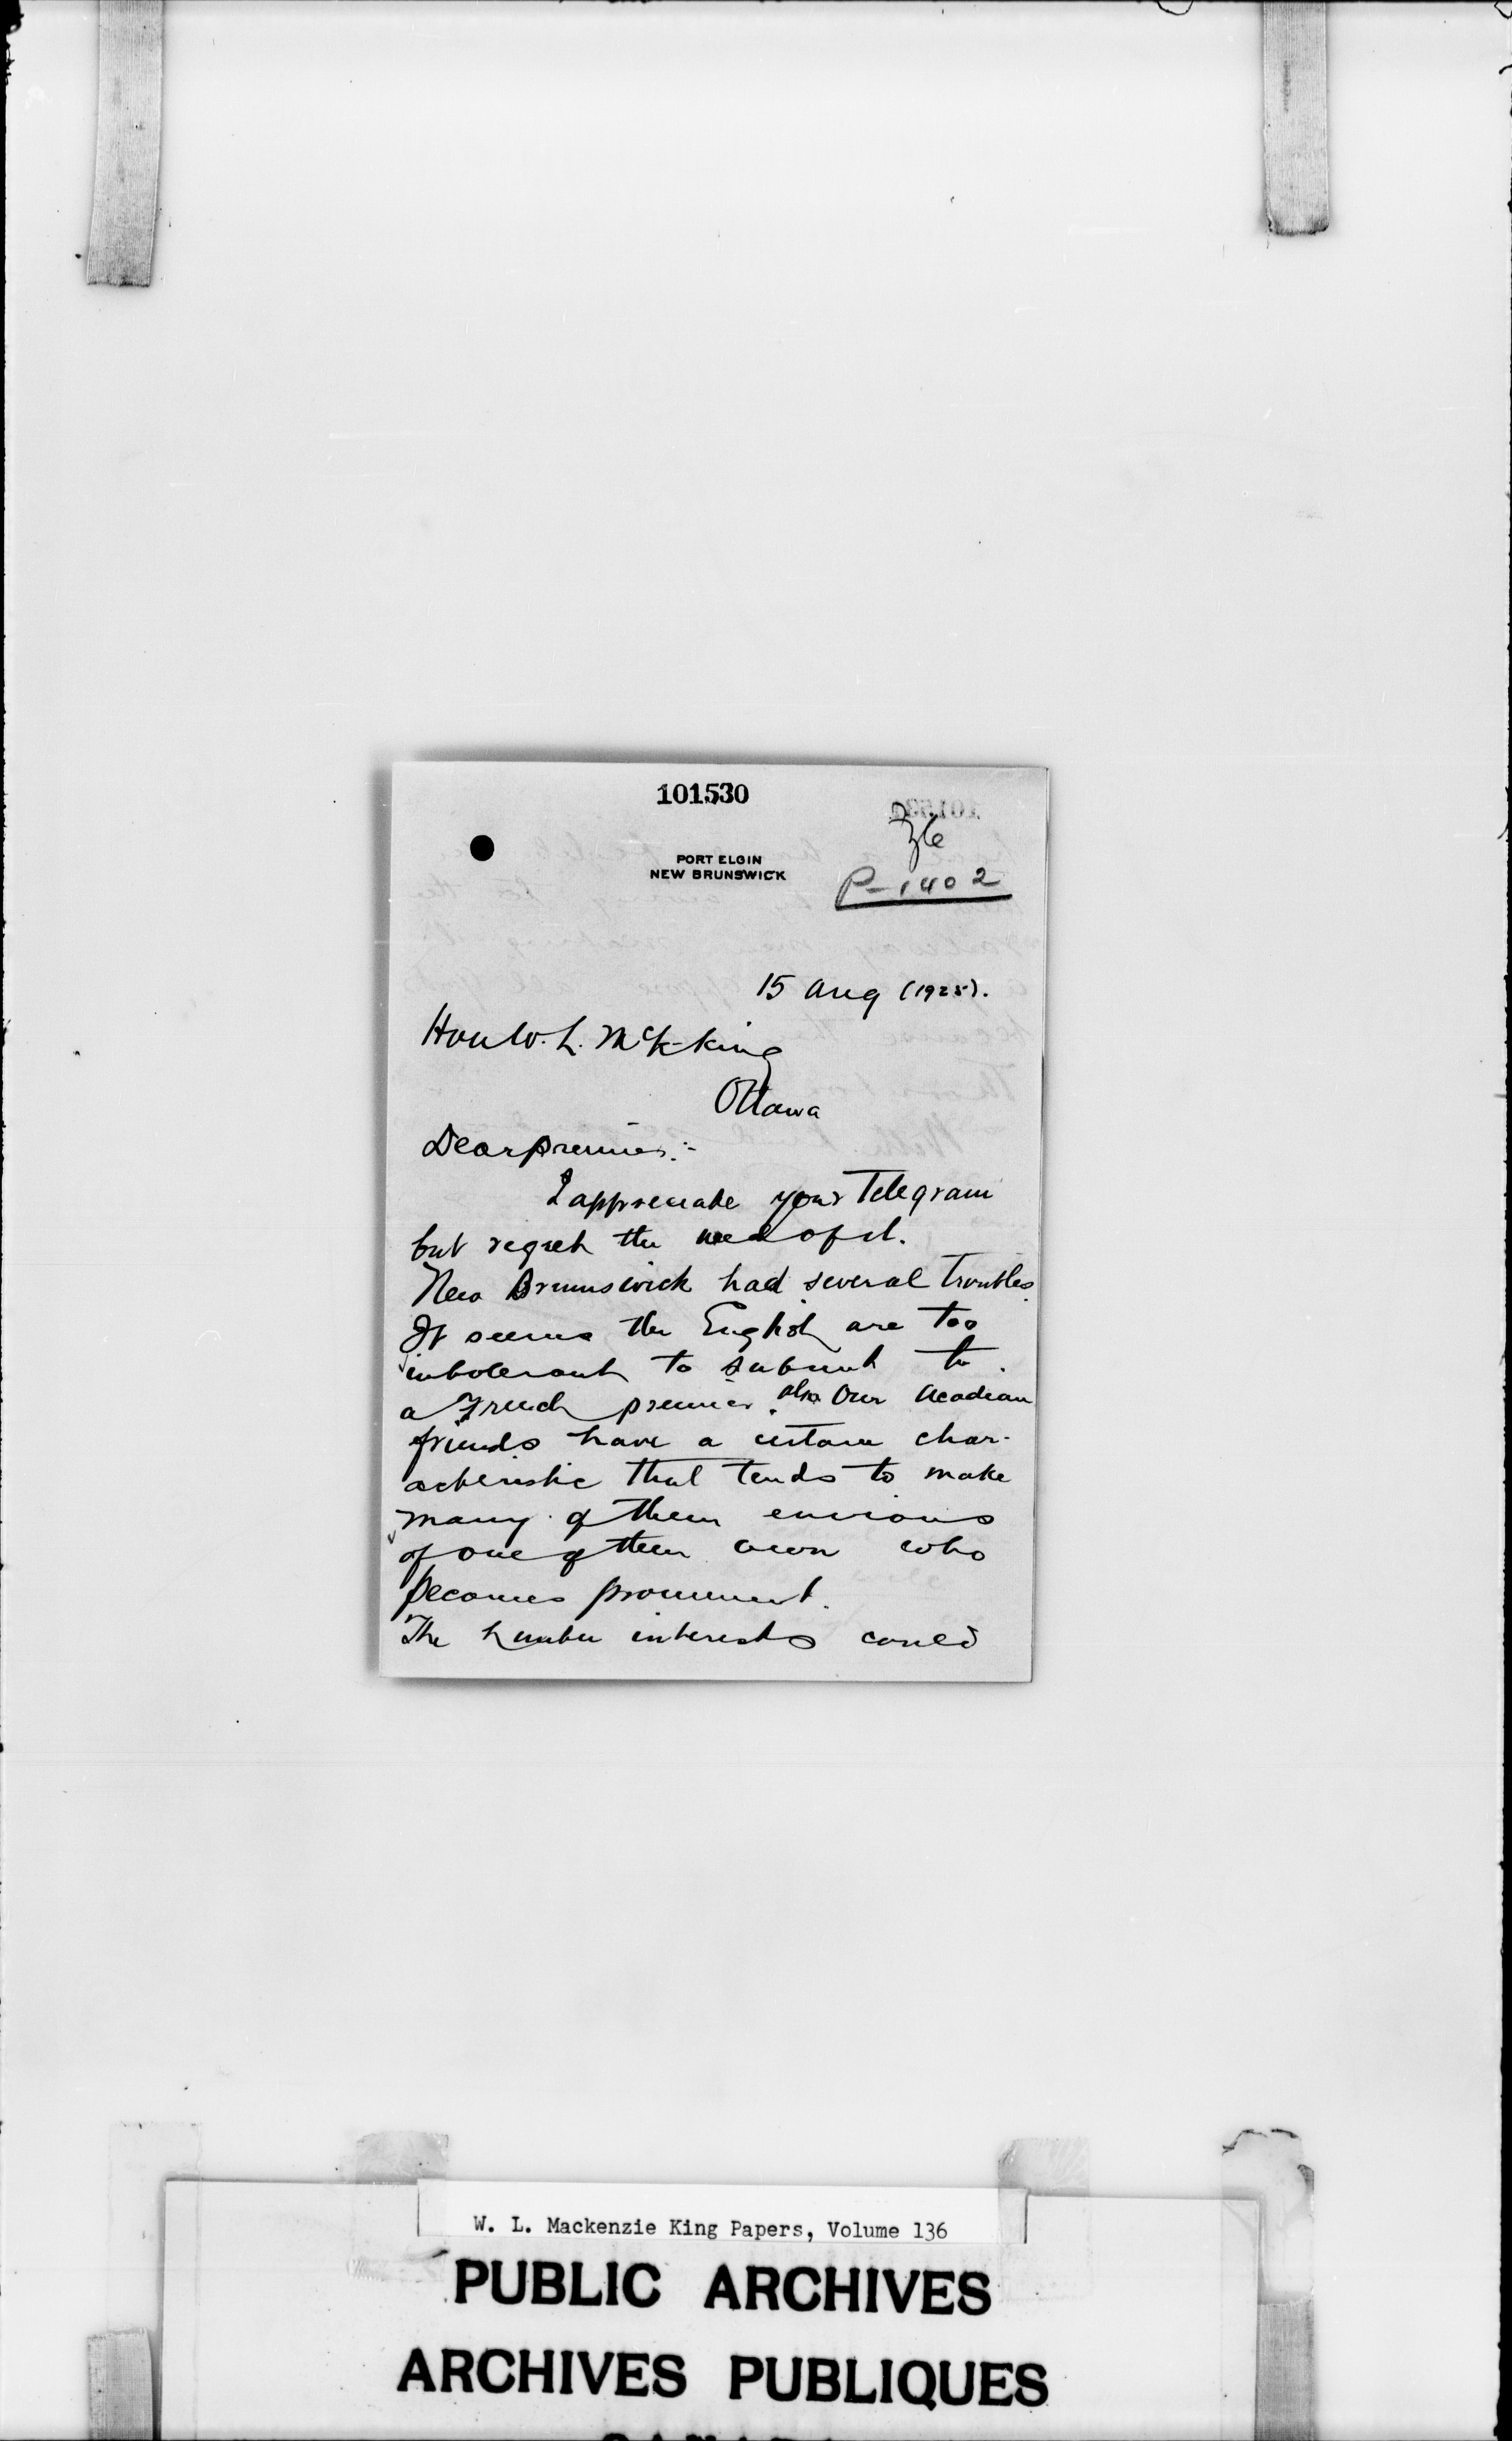 101530
36
PORT ELGIN
NEW BRUNSWICK
P-1402
15 Aug (1925).
Hon W. L. McK-King
Ottawa
Dear premier:-
I appreciate your Telegram
but regret the need of it.
New Brunswick had several troubles.
It seems the English are too
intolerant to submit to
a French premier. also Our Acadian
friends have a certain char-
acteristic that tends to make
many of them envious
of one of their own who
becomes prominent.
The Lumber interests could
W. L. Mackenzie King Papers, Volume 136
PUBLIC ARCHIVES
ARCHIVES PUBLIQUES